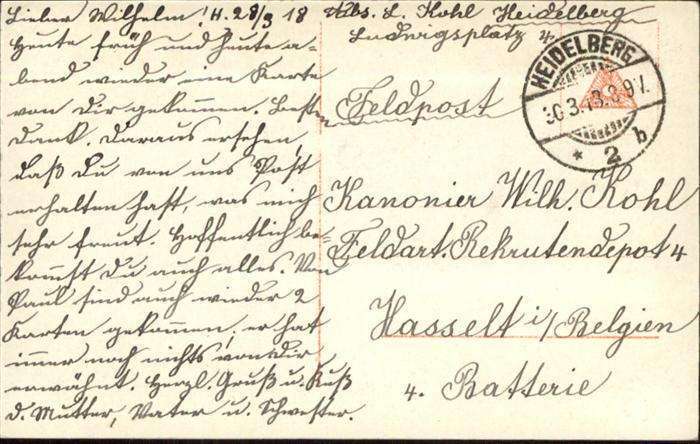 Lieber Wilhelm! H. 28/3 18
Heute früh und heute a-
bend wieder eine Karte
von dir gekommen. Besten
Dank. Daraus ersehen,
daß Du von uns Post
erhalten hast, was mich
sehr freut. Hoffentlich be-
kommst Du auch alles. Von
Paul sind auch wieder 2
Karten gekommen, er hat
immer noch nichts von dir
erwähnt. Herzl. Gruß u. Kuß
d. Mutter, Vater u. Schwester.
Abs. L. Kohl Heidelberg
Ludwigsplatz 4.
HEIDELBERG
30.3.18. 8-9V.
* 2 b
Feldpost
Kanonier Wilh. Kohl
Feldart. Rekrutendepot 4
Hasselt i/Belgien
4. Batterie